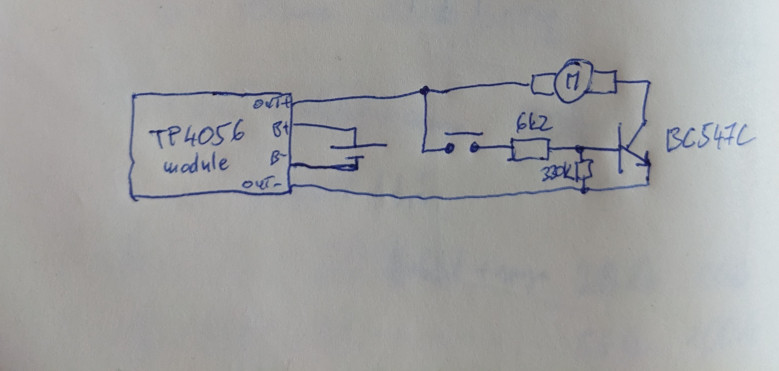 TP4056
module
OUT+
B+
B-
OUT-
M
6k2
330k
BC547C